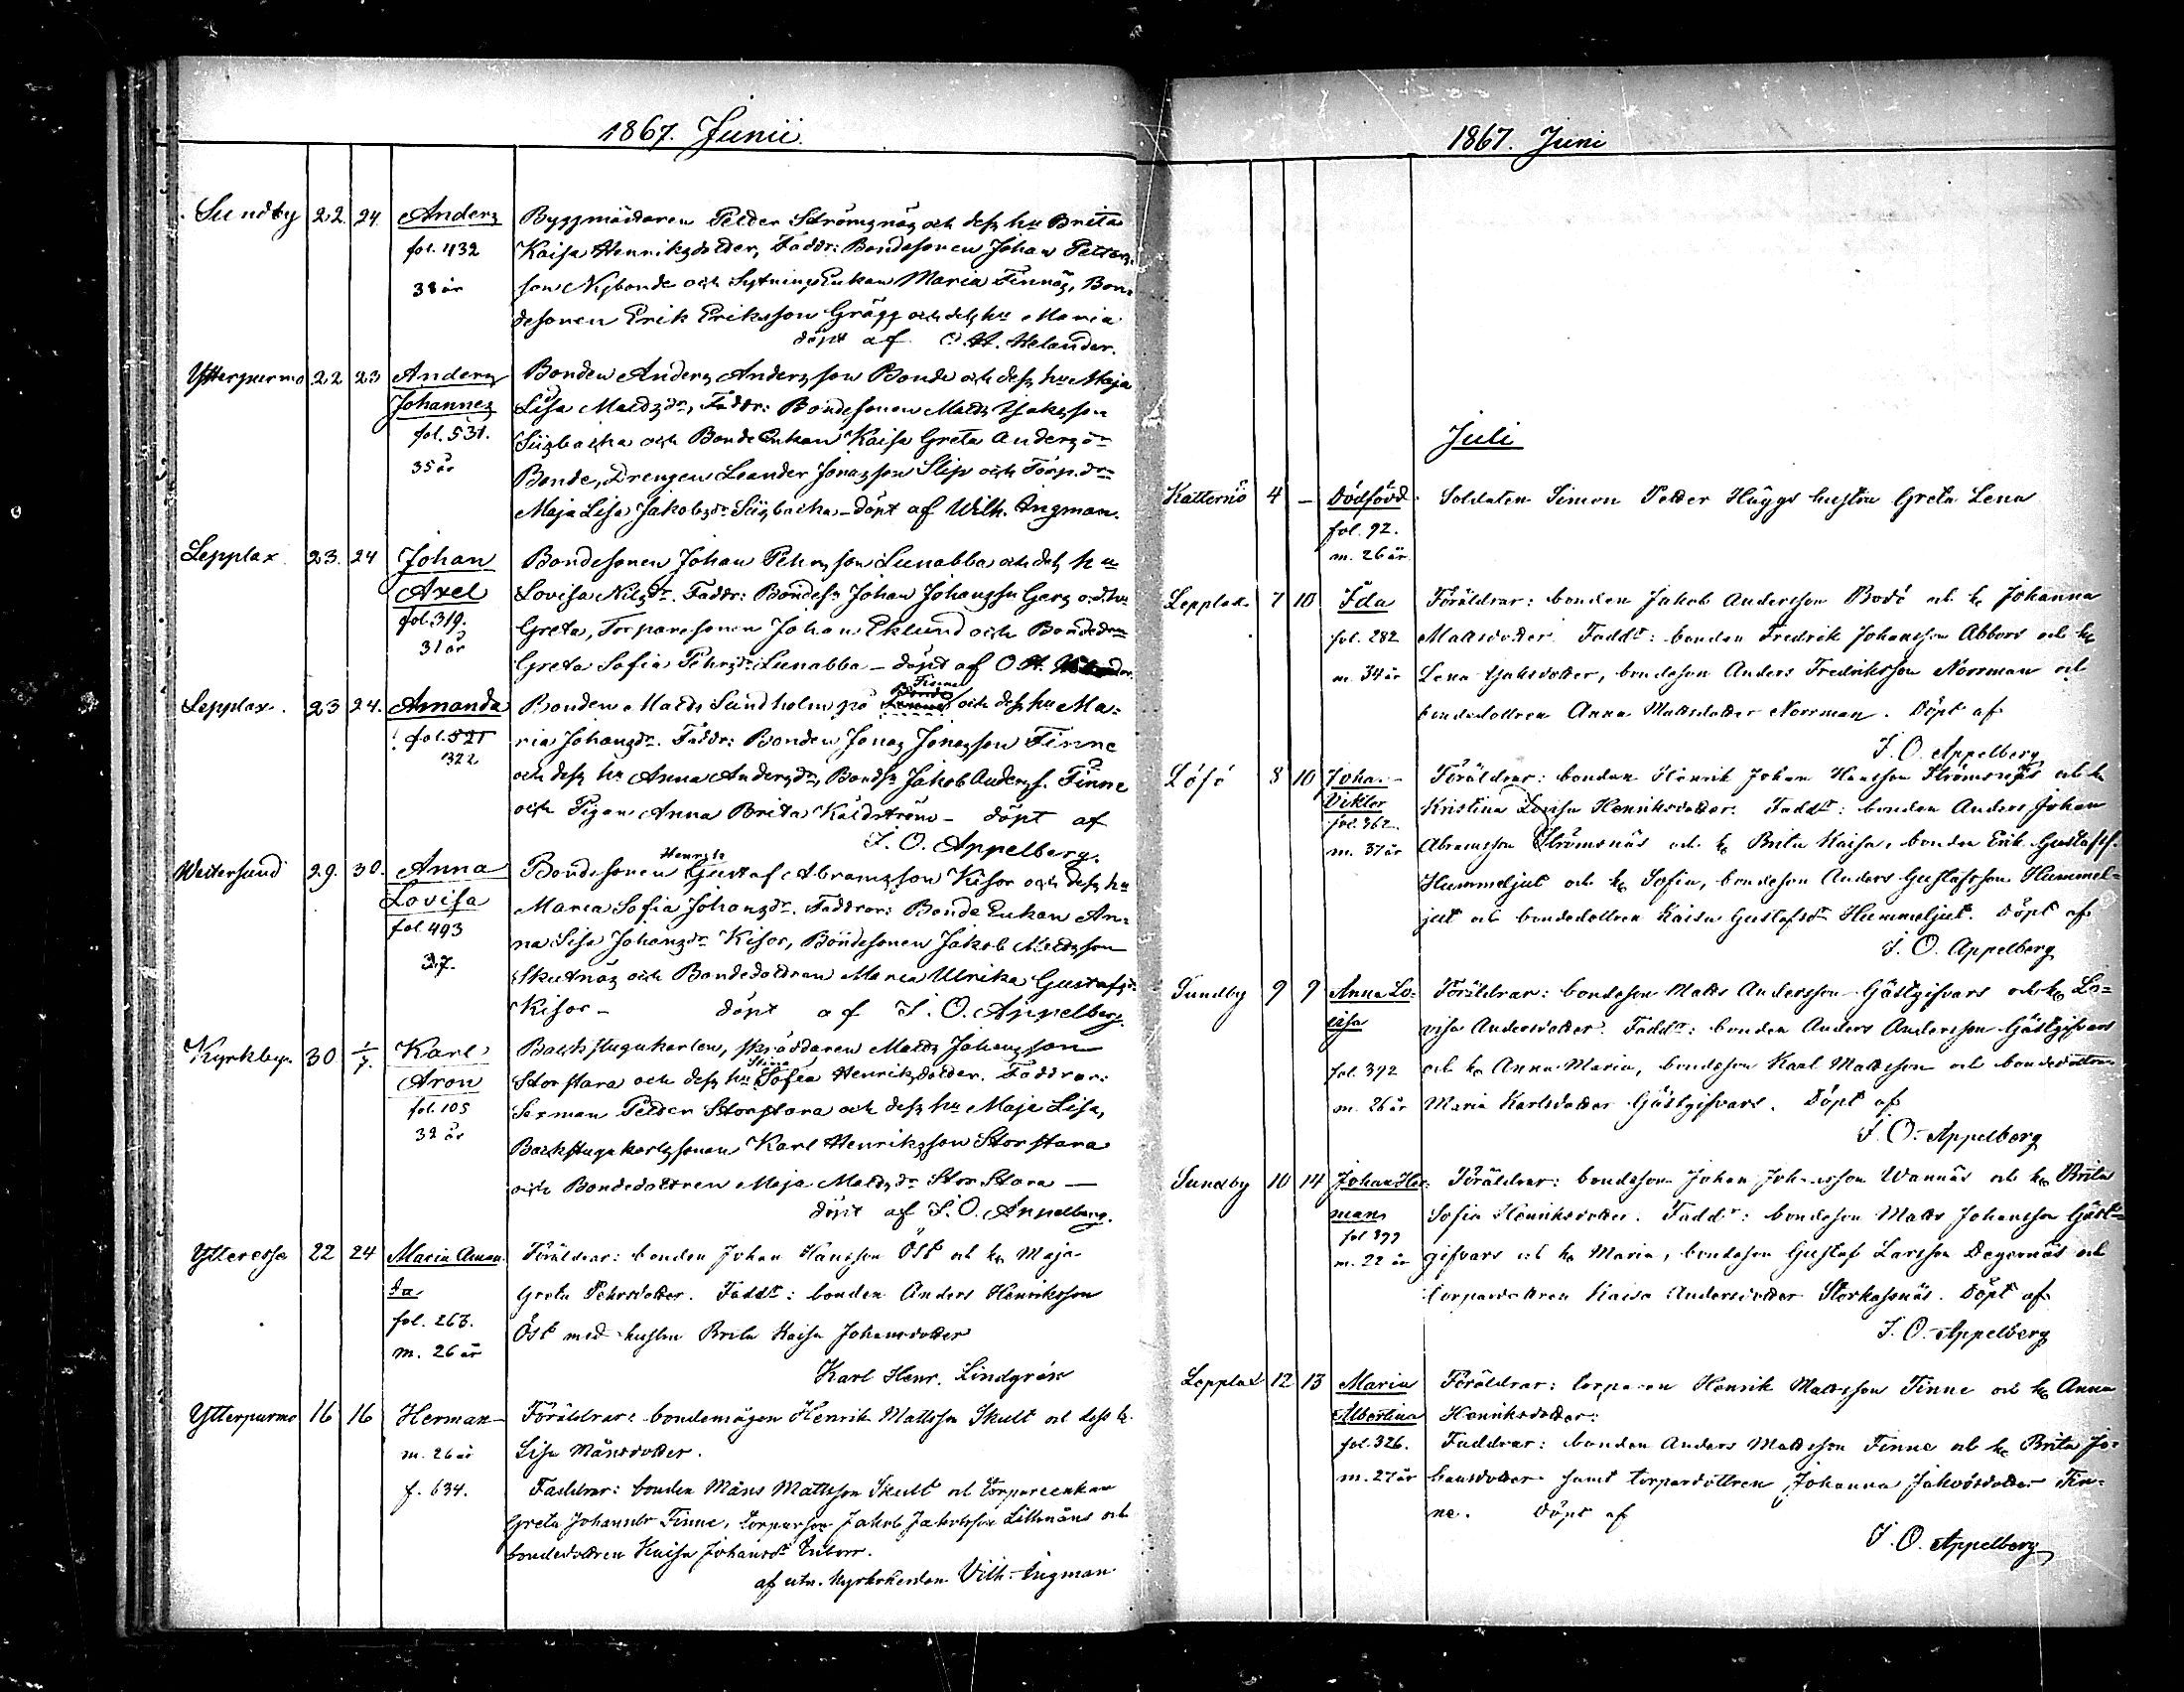 1867. Junii.
Sundby 22. 24. Anders Byggmästaren Petter Strömsnäs och dess hu Brita
fol. 432 Kaisa Henriksdotter, Faddr: Bondesonen Johan Petters-
38 år son Nybonde och Sytnings Enkan Maria Finnäs, Bon-
desonen Erik Eriksson Grägg och dess hu Maria
döpt af O. H. Helander.
Ytterpurmo 22 23 Anders Bonden Anders Andersson Bonde och dess hu Maja
Johannes Lisa Mattsdr, Faddr: Bondesonen Matts Isaksson
fol. 531. Sisbacka och Bonde Enkan Kaisa Greta Andersdr
35 år Bonde, Drengen Leander Jonasson Slip och Torp.drn
Maja Lisa Jakobsdr Sisbacka – döpt af Wilh. Ingman.
Lepplax 23. 24 Johan Bondesonen Johan Pehrsson Lunabba och dess hu
Axel Lovisa Nilsdr. Faddr: Bondes. Johan Johansson Gers o. d. hu
fol. 319. Greta, Torparesonen Johan Eklund och Bondedrn
31 år Greta Sofia Pehrsdr Lunabba – döpt af O. H. Helander.
Finne
Lepplax. 23 24. Amanda Bonden Matts Sundholm på och dess hu Ma-
fol. 521 ria Johansdr. Faddr: Bonden Jonas Jonasson Finne
322 och dess hu Anna Andersdr, Bondes. Jakob Anderss. Finne
och Pigan Anna Brita Käldström – döpt af
J. O. Appelberg.
Henrik
Weitersund 29. 30. Anna Bondesonen Gustaf Abramsson Kisor och dess hu
Lovisa Maria Sofia Johansdr. Faddrar: Bonde Enkan An-
fol. 493 na Lisa Johansdr Kisor, Bondesonen Jakob Mattsson
27. Skutnäs och Bondedottren Maria Ulrika Gustafsdr
Kisor – döpt af J. O. Appelberg.
Kyrkby. 30 1/7. Karl Backstugukarlen, skräddaren Matts Johansson
Stina
Aron Storstara och dess hu Sofia Henriksdotter. Faddrar:
fol. 105 Sexman Petter Storstara och dess hu Maja Lisa,
39 år Backstugukarlssonen Karl Henriksson Storstara
och Bondedottren Maja Mattsdr Stor Stara –
döpt af J. O. Appelberg.
Ytteresse 22 24 Maria Aman- Föräldrar: bonden Johan Hansson Öst och h. Maja
da Greta Pehrsdotter. Faddr: bonden Anders Henriksson
fol. 263. Öst med hustru Brita Kaisa Johansdotter
m. 26 år
Karl Henr. Lindgrén
Ytterpurmo 16 16 Herman Föräldrar: bondemågen Henrik Mattsson Skult och dess h.
m. 26 år Lisa Månsdotter.
f. 634. Faddrar: bonden Måns Mattsson Skult och torpareenkan
Greta Johansdr Finne, torparson Jakob Jakobsson Lillmåns och
bondedottren Kaisa Johansdr
af utn. kyrkoherden Vilh. Ingman
1867. Juni
Juli
Katternö 4 – Dödfödd. Soldaten Simon Petter Häggs hustru Greta Lena
fol. 92.
m. 26 år.
Lepplax 7 10 Ida Föräldrar: bonden Jakob Andersson Bodö och h. Johanna
fol. 282 Mattsdotter. Faddr: bonden Fredrik Johansson Abbors och h.
m. 34 år Lena Isaksdotter, bondeson Anders Fredriksson Norrman och
bondedottren Anna Mattsdotter Norrman. Döpt af
J. O. Appelberg
Löfö 8 10 Joha. Föräldrar: bonden Henrik Johan Hansson Strömsnäs och h.
Viktor Kristina Lovisa Henriksdotter. Faddr: bonden Anders Johan
fol. 362. Abramsson Strömsnäs och h. Brita Kaisa, bonden Erik Gustafss.
m. 37 år Hummeljut och h. Sofia, bondeson Anders Gustafsson Hummel-
jut och bondedottren Kaisa Gustafsdr Hummeljut. Döpt af
J. O. Appelberg
Sundby 9 9 Anna Lo- Föräldrar: bondeson Matts Andersson Gästgifvars och h. Lo-
visa visa Andersdotter. Faddr: bonden Anders Andersson Gästgifvars
fol. 392 och h. Anna Maria, bondeson Karl Mattsson och bondedottren
m. 26 år Maria Karlsdotter Gästgifvars. Döpt af
J. O. Appelberg
Sundby 10 14 Johan Her- Föräldrar: bondeson Johan Johansson Wannäs och h. Brita
man Sofia Henriksdotter. Faddr: bondeson Matts Johansson Gäst-
fol 399 gifvars och h. Maria, bondeson Gustaf Larsson Degernäs och
m. 22 år torpardottren Kaisa Andersdotter Storkasnäs. Döpt af
J. O. Appelberg
Lepplax 12 13 Maria Föräldrar: torparen Henrik Mattsson Finne och h. Anna
Albertina Henriksdotter.
fol. 326. Faddrar: bonden Anders Mattsson Finne och h. Brita Jo-
m. 27 år hansdotter samt torpardottren Johanna Jakobsdotter Fin-
ne. Döpt af
J. O. Appelberg